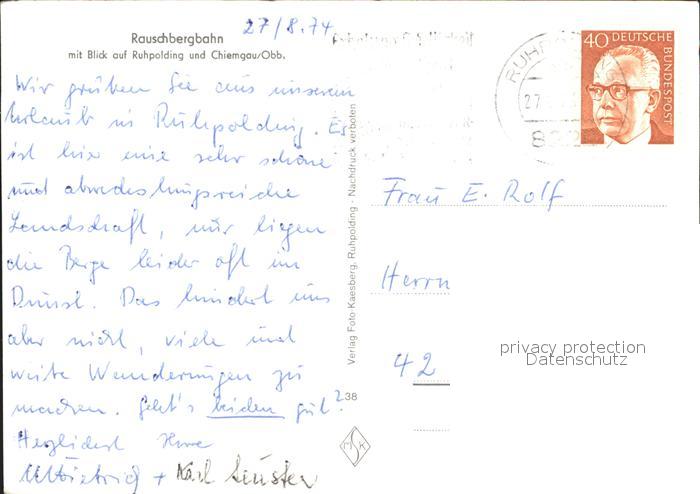 27/8.74
Rauschbergbahn
mit Blick auf Ruhpolding und Chiemgau/Obb.
Wir grüßen Sie aus unserem
Urlaub in Ruhpolding. Es
ist hier eine sehr schöne
und abwechslungsreiche
Landschaft, nur liegen
die Berge leider oft im
Dunst. Das hindert uns
aber nicht, viele und
weite Wanderungen zu
machen. Geht's beiden gut?
Herzlichst Ihre
+ Karl
Verlag Foto-Kaesberg, Ruhpolding - Nachdruck verboten
238
RUHP
27.
822
40 DEUTSCHE
BUNDESPOST
Frau E. Rolf
Herrn
42
privacy protection
Datenschutz